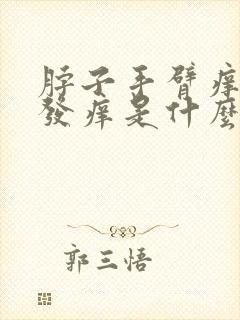 脖子手臂痒
發痒是什麼
郭三悟